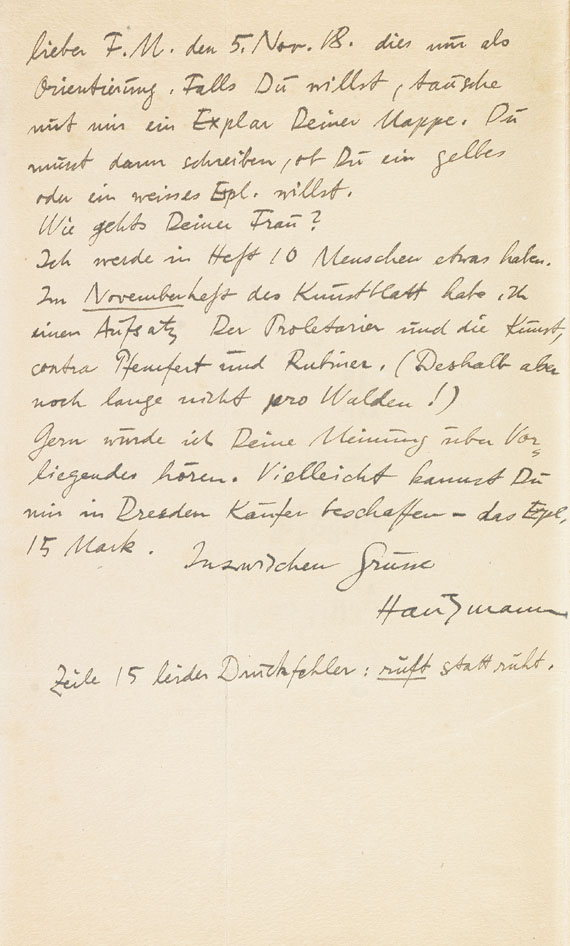 lieber F.M. den 5. Nov. 18. dies nur als
Orientierung. Falls Du willst, tausche
mit mir ein Explar Deiner Mappe. Du
musst dann schreiben, ob Du ein gelbes
oder ein weisses Expl. willst.
Wie gehts Deiner Frau?
Ich werde in Heft 10 Menschen etwas haben.
Im Novemberheft des Kunstblatt habe ich
einen Aufsatz Der Proletarier und die Kunst,
contra Pfemfert und Rubiner. (Deshalb aber
noch lange nicht pro Walden!)
Gern würde ich Deine Meinung über Vor=
liegendes hören. Vielleicht kannst Du
mir in Dresden Käufer beschaffen – das Expl.
15 Mark. Inzwischen Grüsse
Hausmann
Zeile 15 leider Druckfehler: ruft statt ruht.